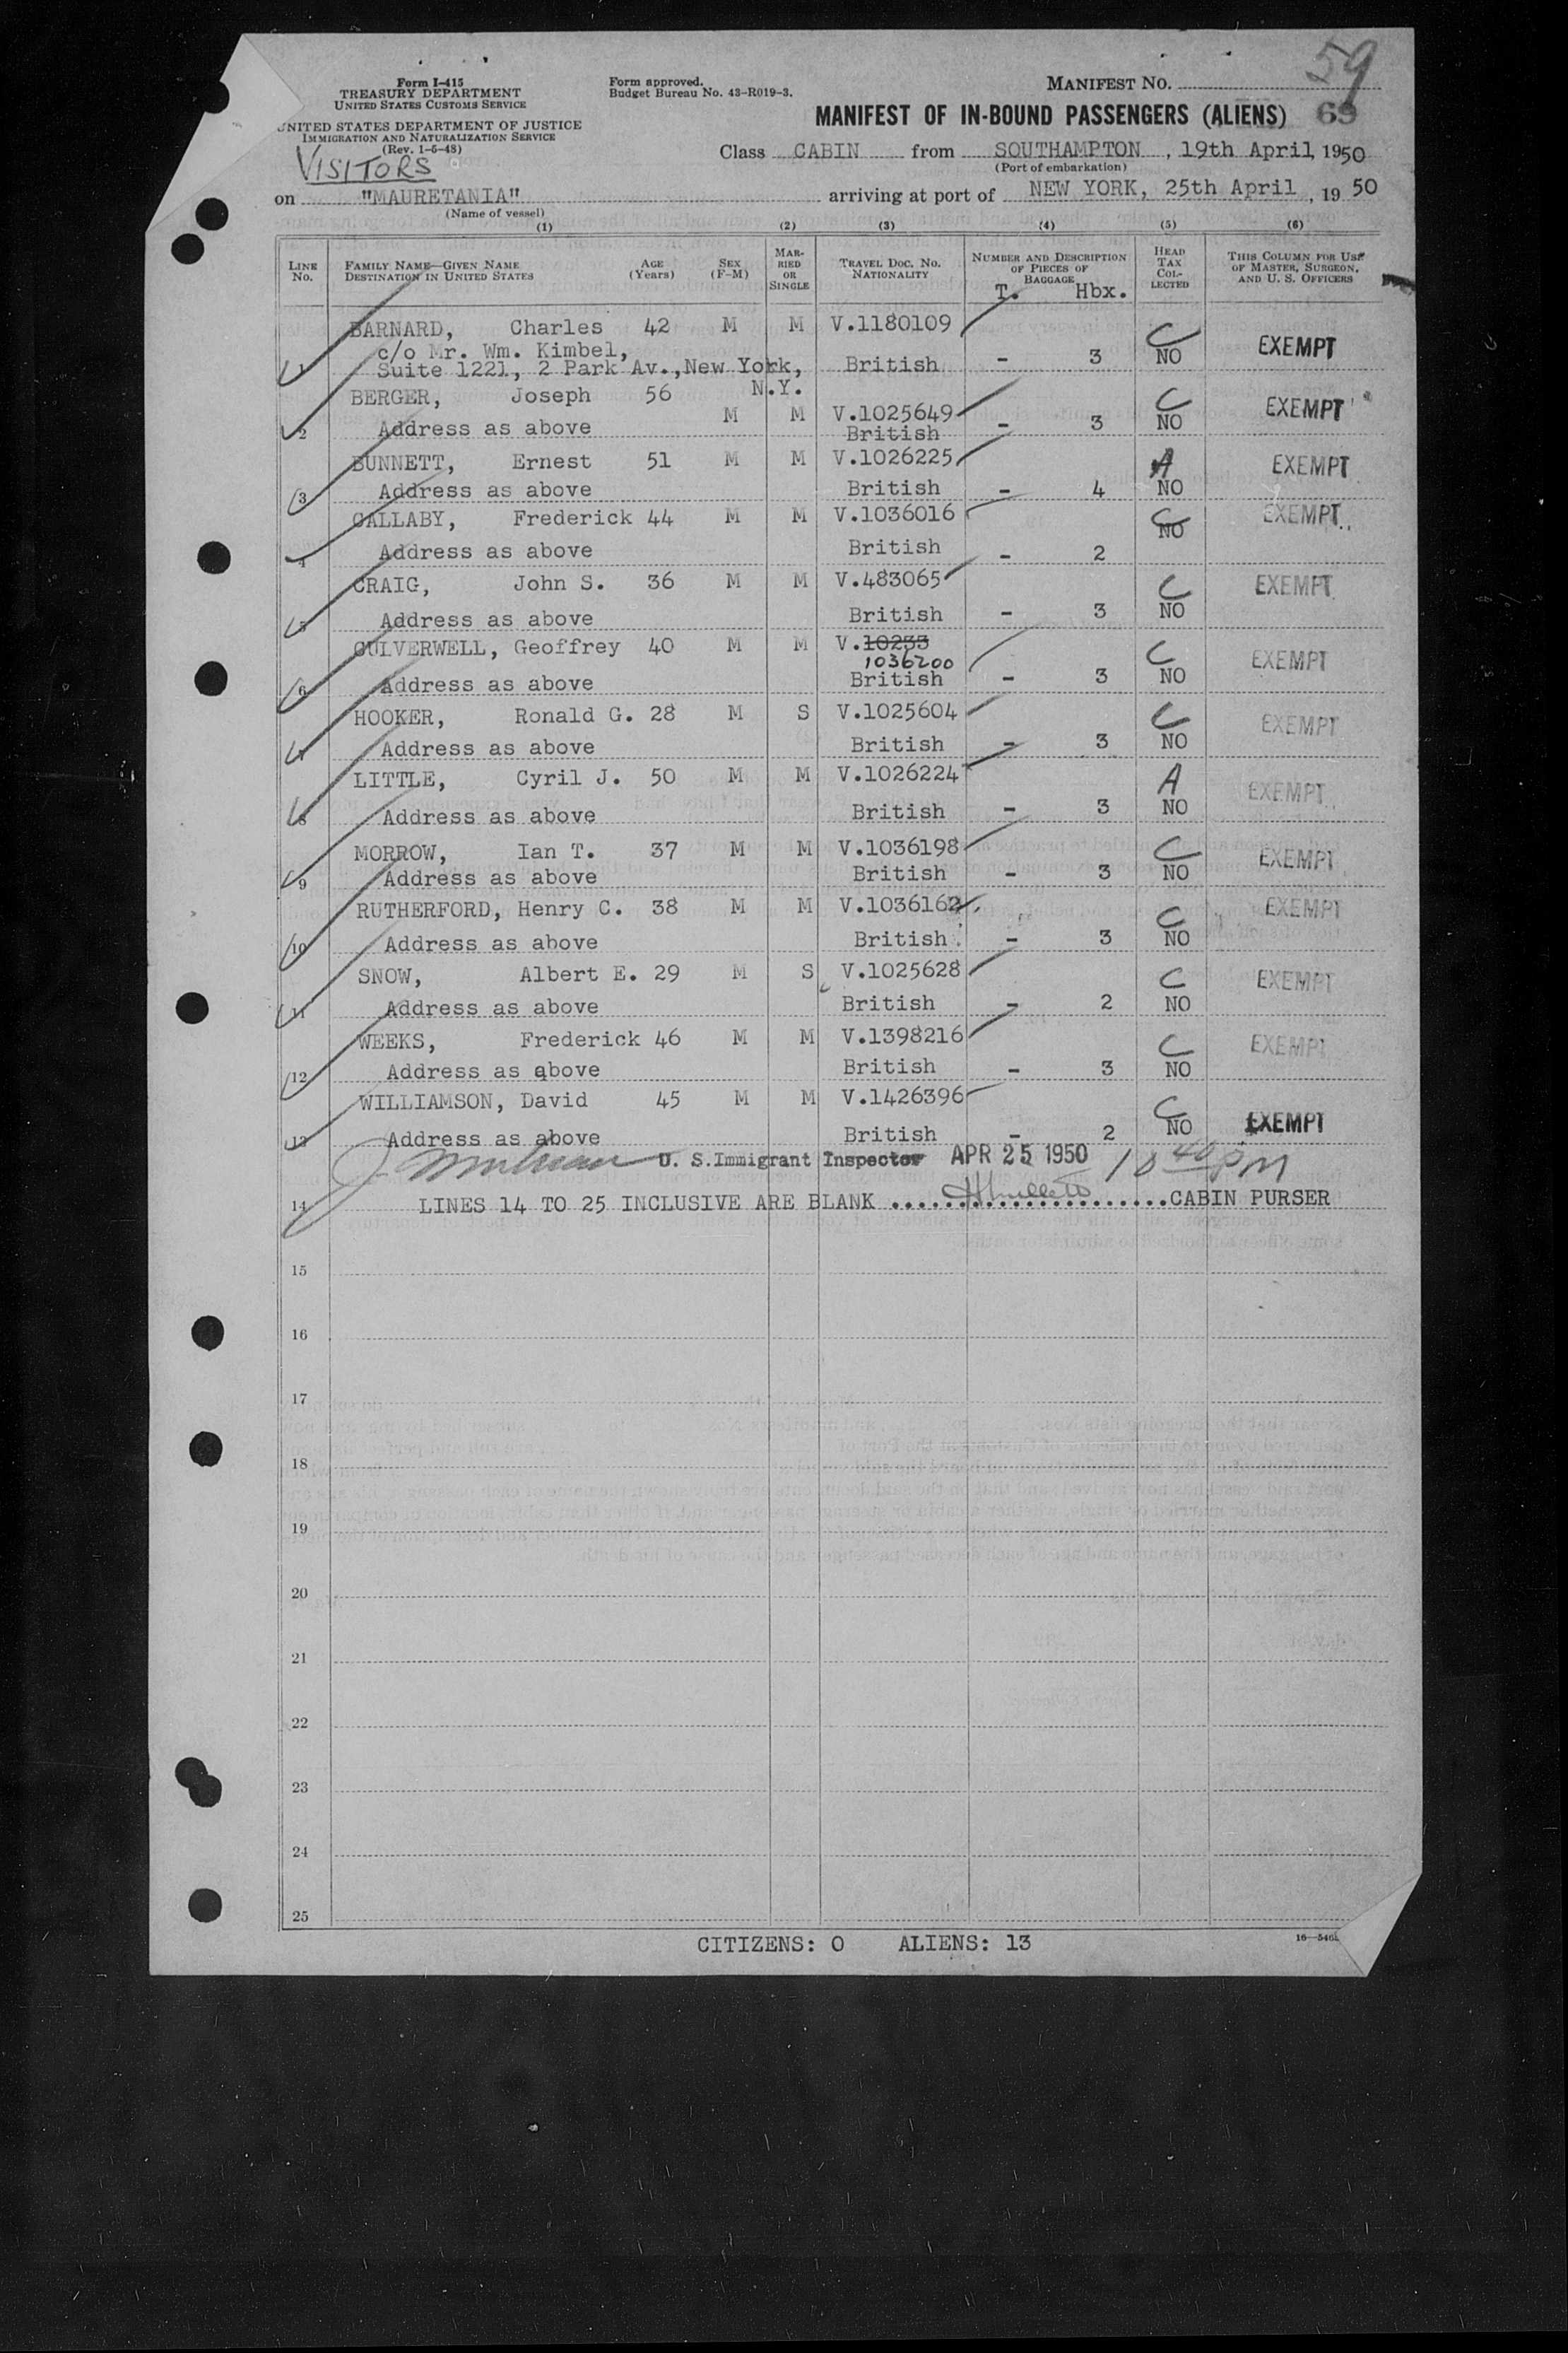 59
Form I-415
TREASURY DEPARTMENT
UNITED STATES CUSTOMS SERVICE
UNITED STATES DEPARTMENT OF JUSTICE
IMMIGRATION AND NATURALIZATION SERVICE
(Rev. 1-6-48)
VISITORS
Form approved.
Budget Bureau No. 43-R019-3.
MANIFEST NO.
MANIFEST OF IN-BOUND PASSENGERS (ALIENS) 69
Class CABIN from SOUTHAMPTON, 19th April, 1950
(Port of embarkation)
on "MAURETANIA" arriving at port of NEW YORK, 25th April, 19 50
(Name of vessel)
(1) (2) (3) (4) (5) (6)
LINE NO. FAMILY NAME—GIVEN NAME DESTINATION IN UNITED STATES AGE (Years) SEX (F-M) MARRIED OR SINGLE TRAVEL DOC. NO. NATIONALITY NUMBER AND DESCRIPTION OF PIECES OF BAGGAGE HEAD TAX COLLECTED THIS COLUMN FOR USE OF MASTER, SURGEON, AND U. S. OFFICERS
T. Hbx.
BARNARD, Charles 42 M M V.1180109 C EXEMPT
c/o Mr. Wm. Kimbel,
1 Suite 1221, 2 Park Av.,New York, British - 3 NO
N.Y.
BERGER, Joseph 56 M M V.1025649 C EXEMPT
2 Address as above British - 3 NO
BUNNETT, Ernest 51 M M V.1026225 A EXEMPT
3 Address as above British - 4 NO
CALLABY, Frederick 44 M M V.1036016 C EXEMPT
4 Address as above British - 2 NO
CRAIG, John S. 36 M M V.483065 C EXEMPT
5 Address as above British - 3 NO
CULVERWELL, Geoffrey 40 M M V.10233 C EXEMPT
1036200
6 Address as above British - 3 NO
HOOKER, Ronald G. 28 M S V.1025604 C EXEMPT
7 Address as above British - 3 NO
LITTLE, Cyril J. 50 M M V.1026224 A EXEMPT
8 Address as above British - 3 NO
MORROW, Ian T. 37 M M V.1036198 C EXEMPT
9 Address as above British - 3 NO
RUTHERFORD, Henry C. 38 M M V.1036162 C EXEMPT
10 Address as above British - 3 NO
SNOW, Albert E. 29 M S V.1025628 C EXEMPT
11 Address as above British - 2 NO
WEEKS, Frederick 46 M M V.1398216 C EXEMPT
12 Address as above British - 3 NO
WILLIAMSON, David 45 M M V.1426396 C EXEMPT
13 Address as above British - 2 NO
U. S.Immigrant Inspector APR 25 1950 10 40 PM
14 LINES 14 TO 25 INCLUSIVE ARE BLANK ........................CABIN PURSER
15
16
17
18
19
20
21
22
23
24
25
CITIZENS: 0 ALIENS: 13